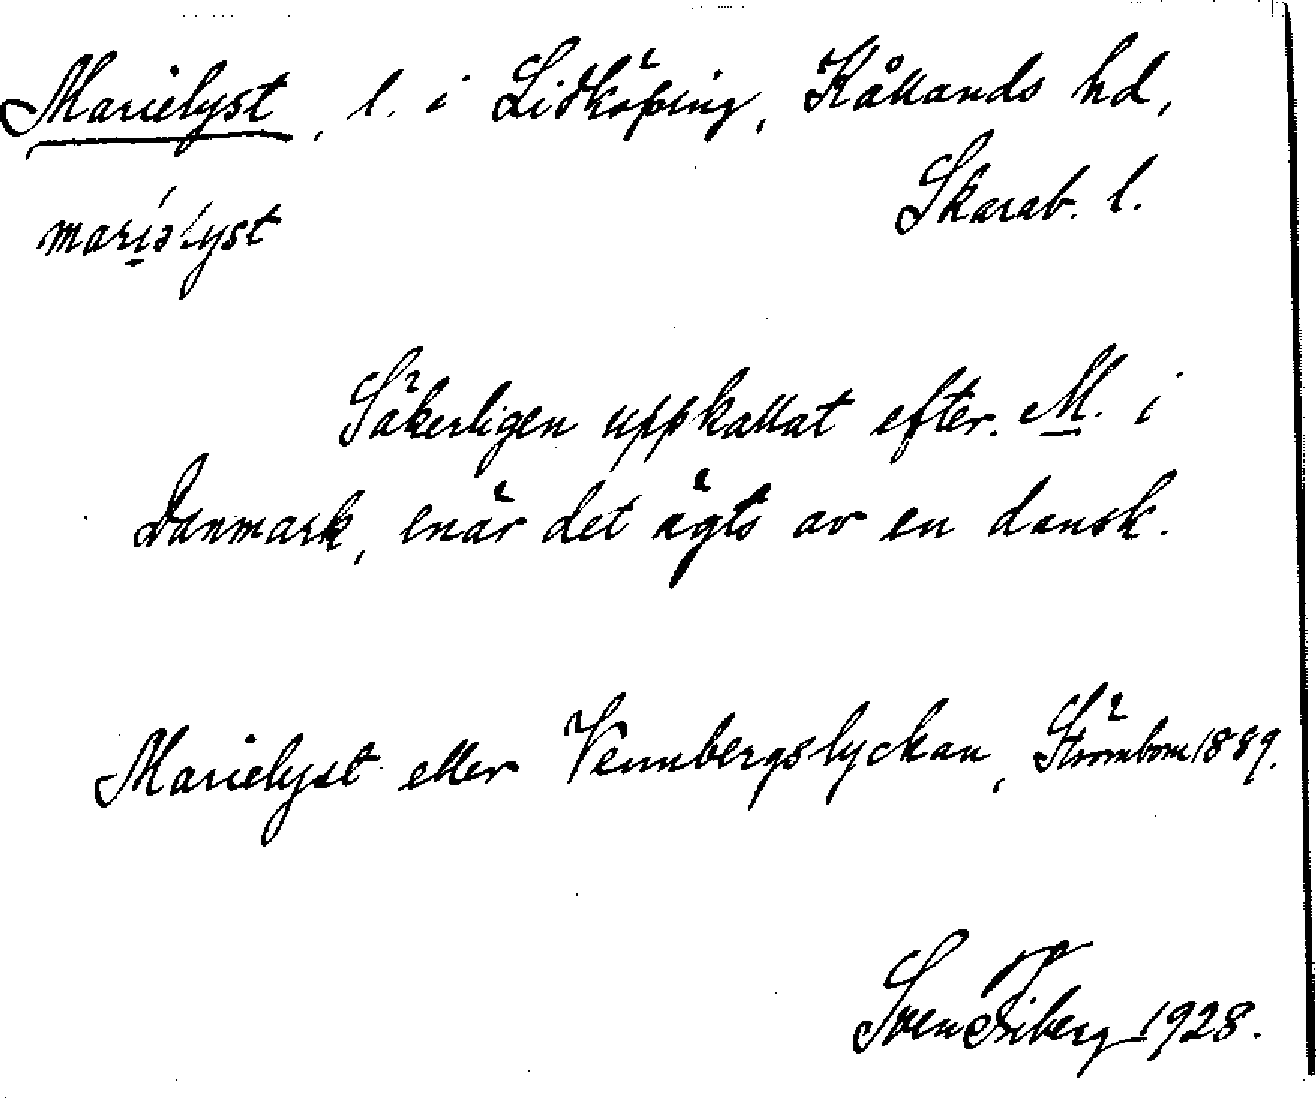 Marielyst, l. i Lidköping, Kållands hd,
Skarab. l.
mariəlyst
Säkerligen uppkallat efter. M. i
Danmark, enär det ägts av en dansk.
Marielyst eller Vennbergslyckan, Strömbom 1889.
Sven Fiberg 1928.